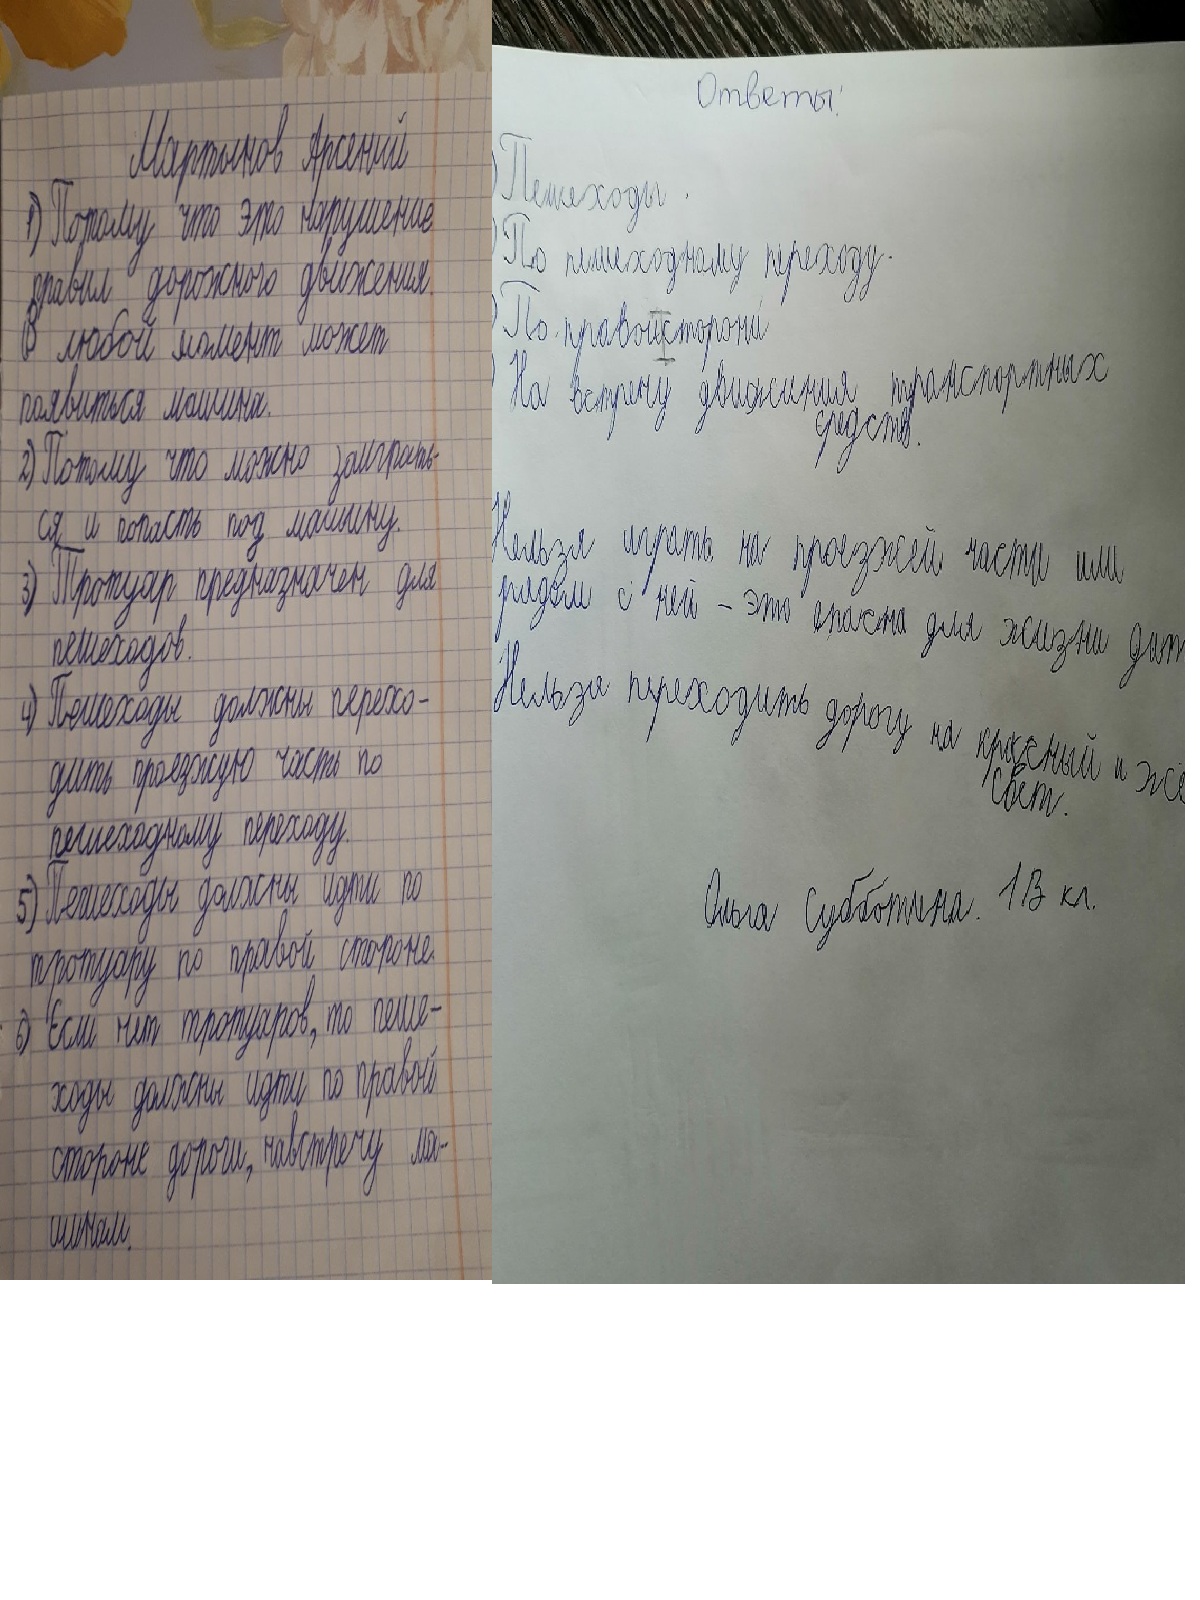 Мартынов Арсений
1) Потому что это нарушение
правил дорожного движения.
В любой момент может
появиться машина.
2) Потому что можно заиграть-
ся и попасть под машину.
3) Тротуар предназначен для
пешеходов.
4) Пешеходы должны перехо-
дить проезжую часть по
пешеходному переходу.
5) Пешеходы должны идти по
тротуару по правой стороне.
6) Если нет тротуаров, то пеше-
ходы должны идти по правой
стороне дороги, навстречу ма-
шинам.
Ответы:
) Пешеходы.
) По пешеходному переходу.
) По правой стороне
) На встречу движения транспортных
средств.
Нельзя играть на проезжей части или
рядом с ней - это опасна для жизни дет
Нельзя переходить дорогу на красный и жё
свет.
Ольга Субботина. 1В кл.